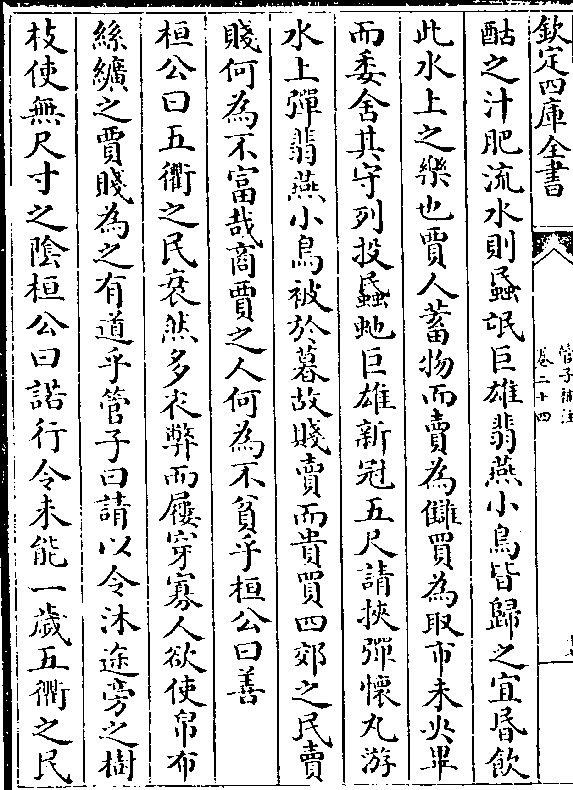 欽定四庫全書
管子補注
卷二十四
酤之汁肥流水則蟁䖟巨雄翡燕小鳥皆歸之宜昏飲
此水上之樂也賈人蓄物而賣為讎買為取市未央畢
而委舍其守列投蟁虵巨雄新冠五尺請挾彈懷丸游
水上彈翡燕小鳥被於暮故賤賣而貴買四郊之民賣
賤何為不富哉商賈之人何為不貧乎桓公曰善
桓公曰五衢之民衰然多衣弊而屨穿寡人欲使帛布
絲纊之賈賤為之有道乎管子曰請以令沐途旁之樹
枝使無尺寸之陰桓公曰諾行令未能一歲五衢之民